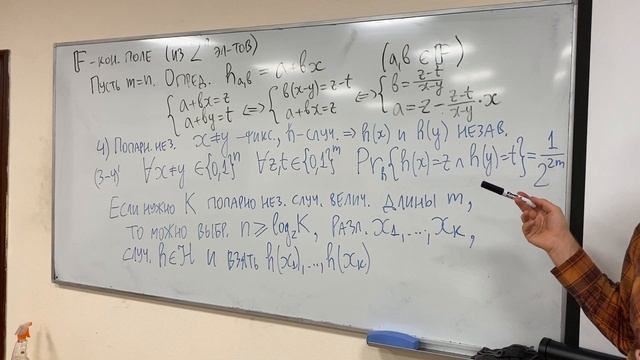 𝔽 - кон. поле (из 2ⁿ эл-тов)
Пусть m=n. Опред. h_{a,b} = a+bx (a,b ∈ 𝔽)
{a+bx=z, a+by=t ⇔ {b(x-y)=z-t, a+bx=z ⇔ {b=(z-t)/(x-y), a=z-(z-t)/(x-y)·x
4) Попарн. нез. x≠y -фикс., h-случ. ⇒ h(x) и h(y) незав.
(3-4) ∀x≠y ∈{0,1}ⁿ ∀z,t∈{0,1}ᵐ Pr_h{h(x)=z ∧ h(y)=t}=1/2^{2m}
Если нужно K попарно нез. случ. велич. длины m,
то можно выбр. n ≥ log₂K, разл. x₁,...,x_K,
случ. h∈H и взять h(x₁),...,h(x_K)